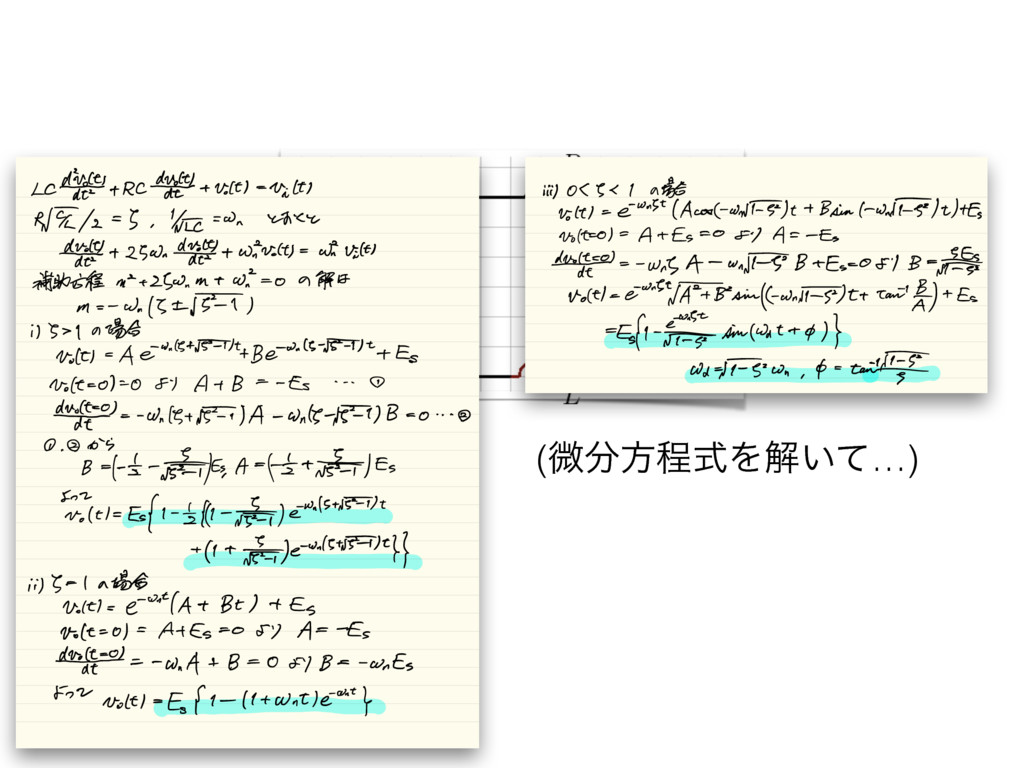 LC d²v₀(t)/dt² + RC dv₀(t)/dt + v₀(t) = vᵢ(t)
R√(C/L)/2 = ζ , 1/√LC = ωₙ とおくと
dv₀(t)/dt² + 2ζωₙ dv₀(t)/dt + ωₙ²v₀(t) = ωₙ² vᵢ(t)
補助方程 m² + 2ζωₙ m + ωₙ² = 0 の解は
m = -ωₙ(ζ ± √(ζ²-1))
i) ζ>1 の場合
v₀(t) = A e^{-ωₙ(ζ+√(ζ²-1))t} + B e^{-ωₙ(ζ-√(ζ²-1))t} + Es
v₀(t=0) = 0 より A + B = -Es … ①
dv₀(t=0)/dt = -ωₙ(ζ+√(ζ²-1))A - ωₙ(ζ-√(ζ²-1))B = 0 … ②
①.② から
B = (-1/2 - ζ/√(ζ²-1))Es, A = (-1/2 + ζ/√(ζ²-1))Es
よって
v₀(t) = Es{1 - 1/2{(1 - ζ/√(ζ²-1)) e^{-ωₙ(ζ+√(ζ²-1))t}
+ (1 + ζ/√(ζ²-1)) e^{-ωₙ(ζ+√(ζ²-1))t}}}
ii) ζ = 1 の場合
v₀(t) = e^{-ωₙt}(A + Bt) + Es
v₀(t=0) = A + Es = 0 より A = -Es
dv₀(t=0)/dt = -ωₙA + B = 0 より B = -ωₙEs
よって v₀(t) = Es{1 - (1+ωₙt)e^{-ωₙt}}
iii) 0 < ζ < 1 の場合
v₀(t) = e^{-ωₙζt}(A cos(-ωₙ√(1-ζ²))t + B sin(-ωₙ√(1-ζ²))t) + Es
v₀(t=0) = A + Es = 0 より A = -Es
dv₀(t=0)/dt = -ωₙζA - ωₙ√(1-ζ²) B + Es = 0 より B = ζEs/√(1-ζ²)
v₀(t) = e^{-ωₙζt}√(A²+B²) sin((-ωₙ√(1-ζ²))t + tan⁻¹ B/A) + Es
= Es{1 - e^{-ωₙζt}/√(1-ζ²) sin(ω_d t + φ)}
ω_d = √(1-ζ²) ωₙ , φ = tan⁻¹ √(1-ζ²)/ζ
L
(微分方程式を解いて…)